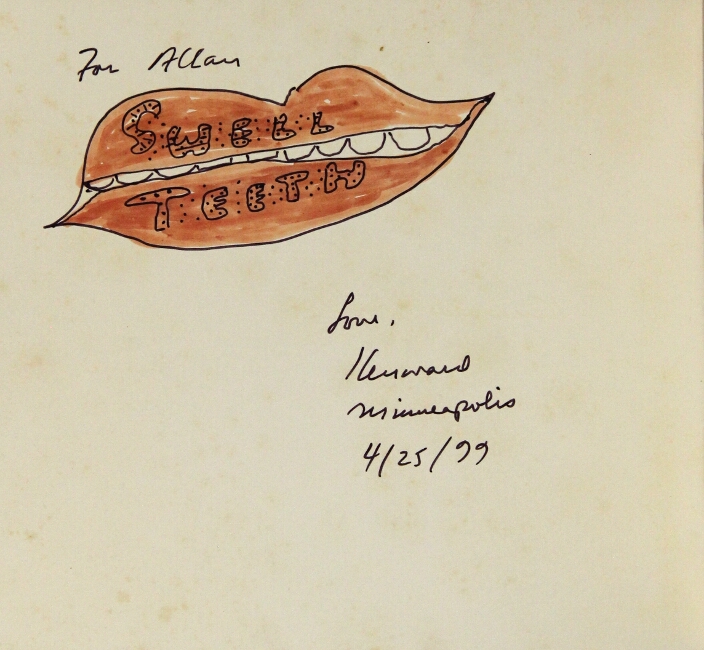 For Allan
SWELL
TEETH
Love,
Kenward
Minneapolis
4/25/99